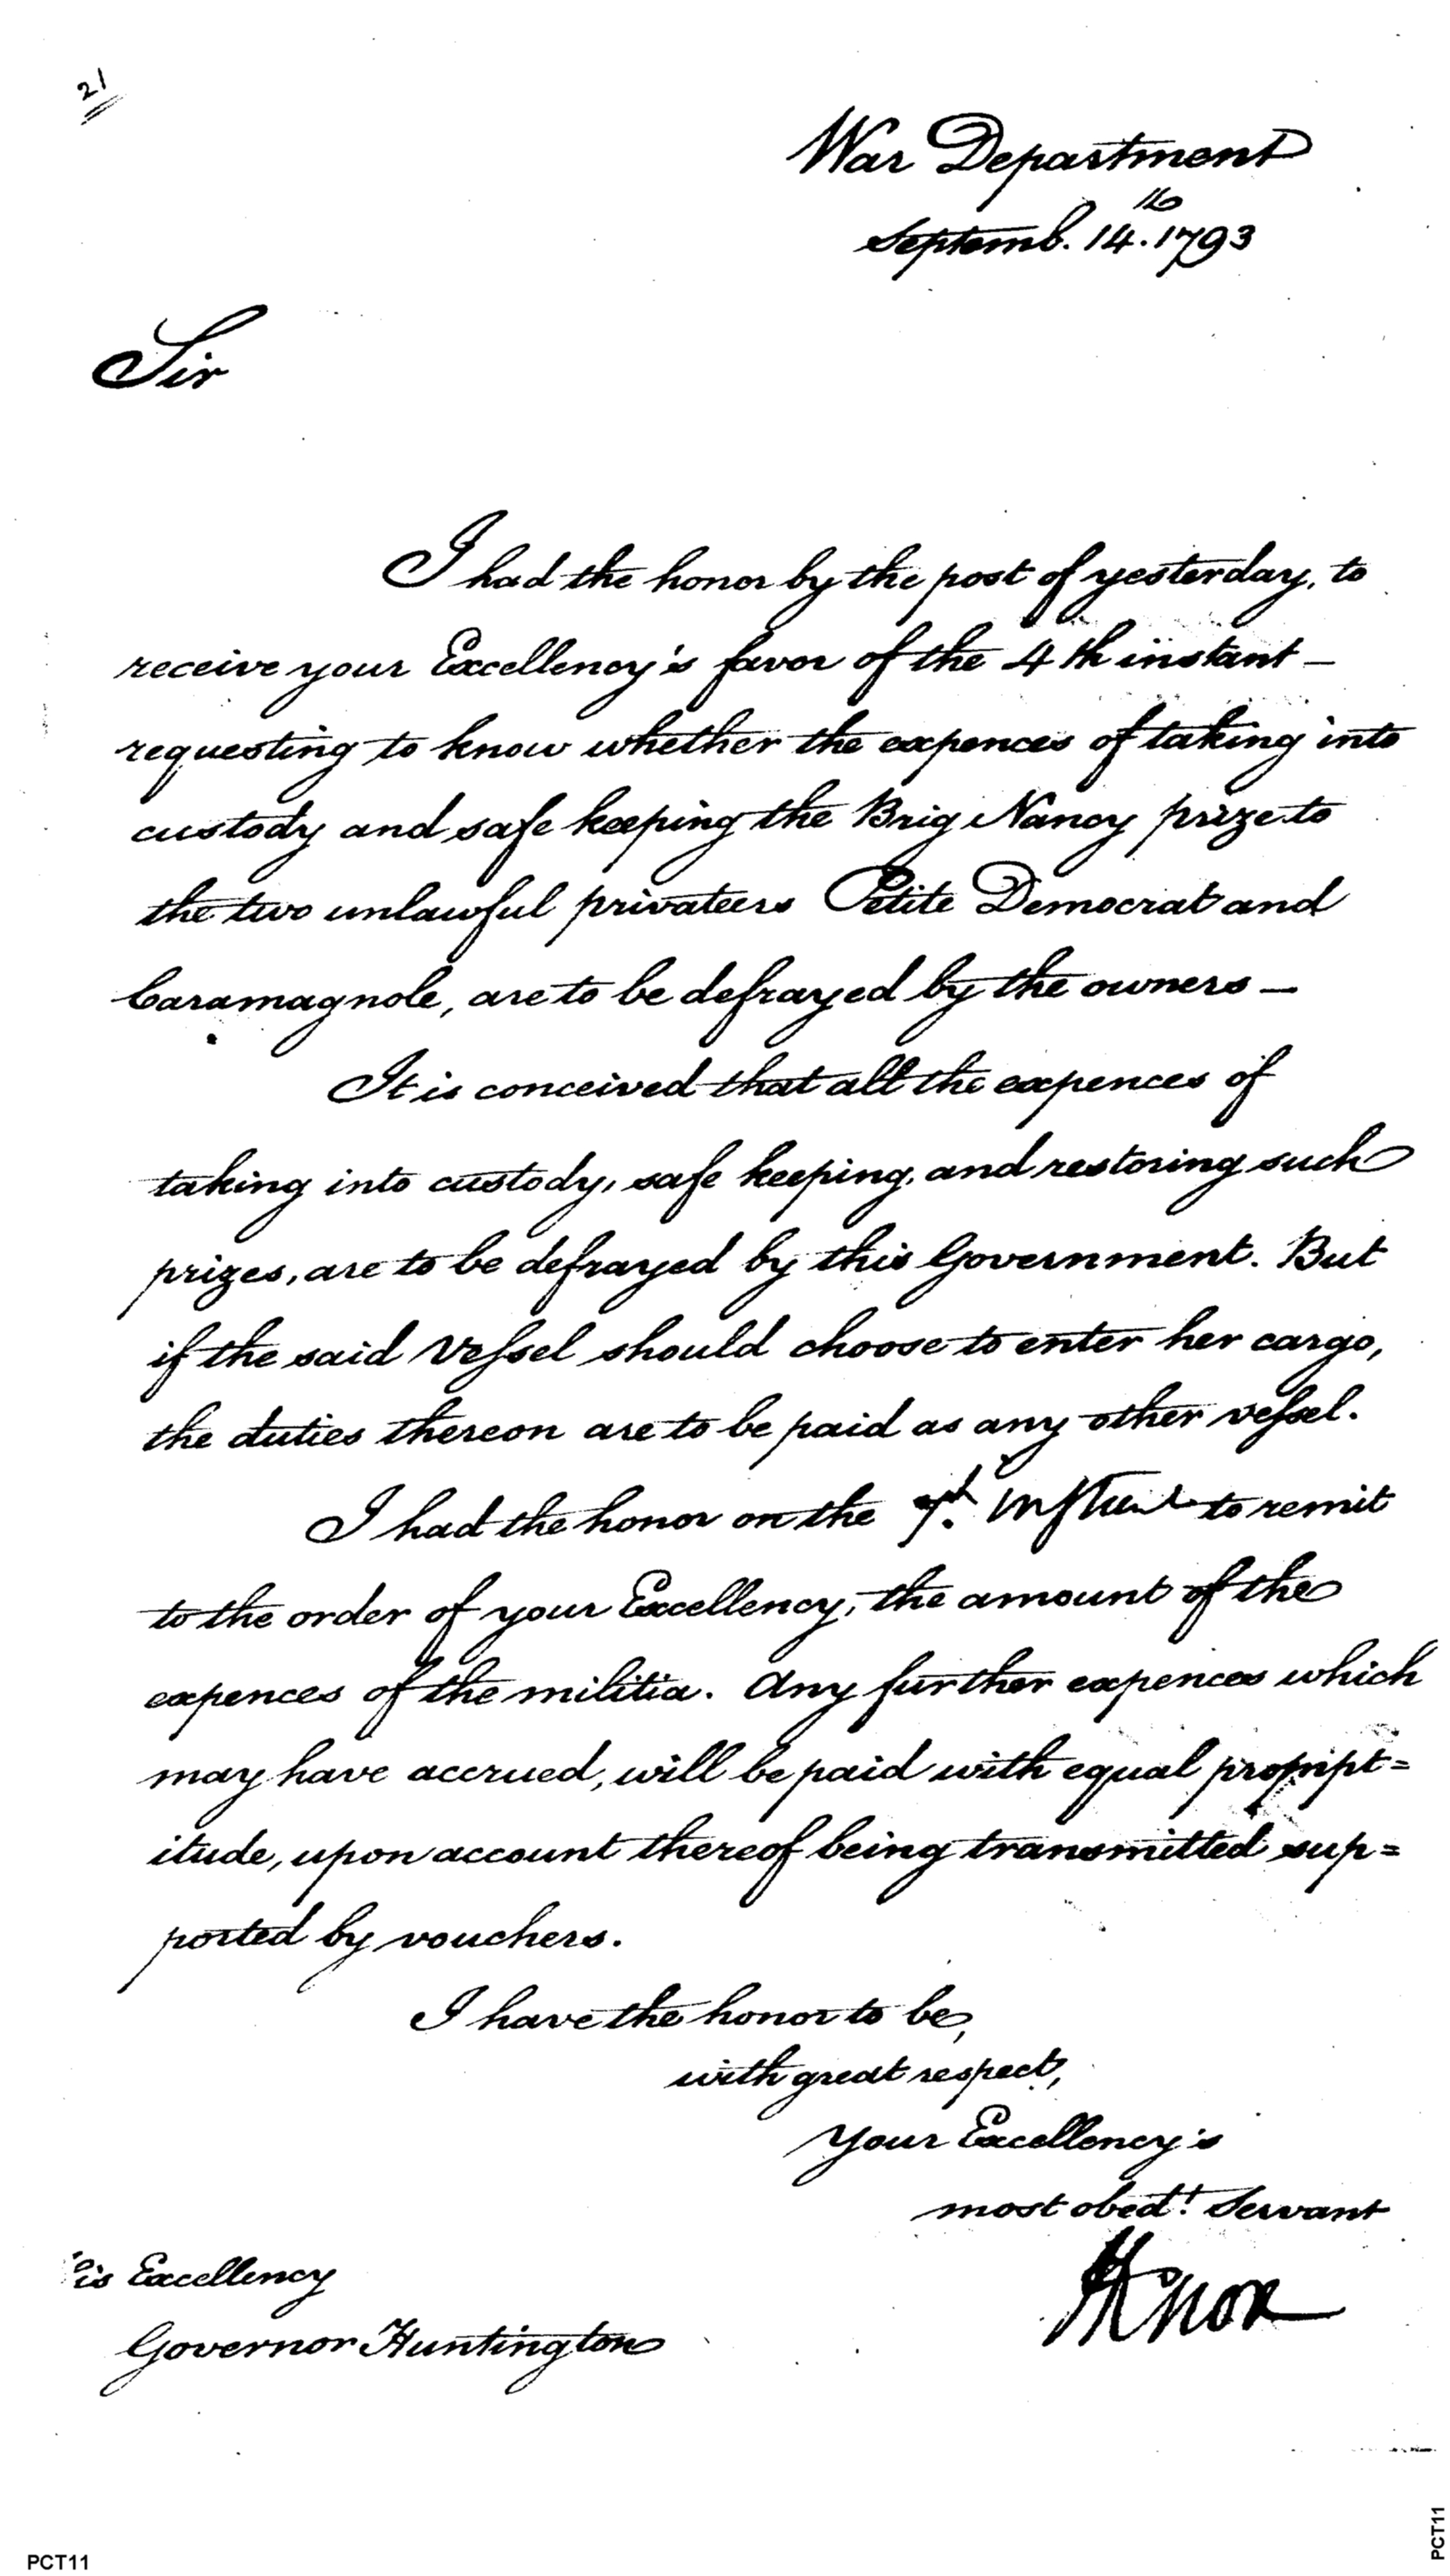 21
War Department
16
Septemb. 14. 1793
Sir
I had the honor by the post of yesterday, to
receive your Excellency's favor of the 4th instant —
requesting to know whether the expences of taking into
custody and safe keeping the Brig Nancy prize to
the two unlawful privateers Petite Democrat and
Caramagnole, are to be defrayed by the owners —
It is conceived that all the expences of
taking into custody, safe keeping, and restoring such
prizes, are to be defrayed by this Government. But
if the said Vessel should choose to enter her cargo,
the duties thereon are to be paid as any other vessel.
I had the honor on the 7th. instant to remit
to the order of your Excellency, the amount of the
expences of the militia. Any further expences which
may have accrued, will be paid with equal prompt=
itude, upon account thereof being transmitted sup=
ported by vouchers.
I have the honor to be,
with great respect,
Your Excellency's
most obedt. Servant
HKnox
is Excellency
Governor Huntington
PCT11
PCT11